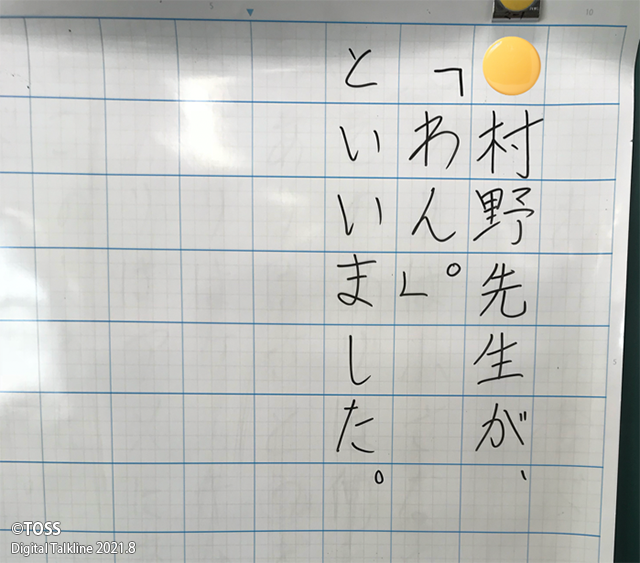 村野先生が、
「わん。」
といいました。
©TOSS
Digital Talkline 2021.8